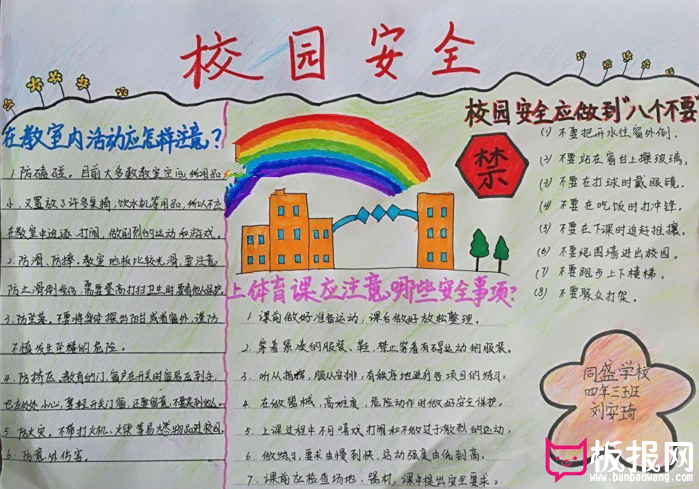 校园安全
在教室内活动应怎样注意？
1. 防磕碰。目前大多数教室空间
小，又置放了许多桌椅、饮水机等用品，所以不应
在教室中追逐、打闹，做剧烈的运动和游戏。
2. 防滑、防摔。教室地板比较光滑，要注意
防止滑倒受伤，需要登高打扫卫生时要有他人保护。
3. 防坠落。不要将身体探出阳台或者窗外，谨防
不慎发生坠楼的危险。
4. 防挤压。教室的门、窗户在开关时容易压到手，
5. 防火灾。不带打火机、火柴等易燃物品进校园。
6. 防意外伤害。
上体育课应注意哪些安全事项？
1. 课前做好准备运动，课后做好放松整理。
2. 穿着紧凑的服装、鞋，禁止穿着有碍运动的服装。
3. 听从指挥，服从安排，有秩序地进行各项目的练习。
4. 在做器械，高难度，危险动作时做好安全保护。
5. 上课过程中不同嘻戏打闹和不做过于激烈的运动。
6. 做练习，要求由慢到快，运动强度由低到高。
7. 课前应检查场地、器材，课中提出安全要求。
校园安全应做到"八个不要"
禁
(1) 不要把开水往窗外倒。
(2) 不要站在窗台上擦玻璃。
(3) 不要在打球时戴眼镜。
(4) 不要在吃饭时打冲锋。
(5) 不要在下课时追赶推攘。
(6) 不要爬围墙进出校园。
(7) 不要跑步上下楼梯。
(8) 不要聚众打架。
同盛学校
四年三班
刘安琦
板报网
www.banbaowang.com